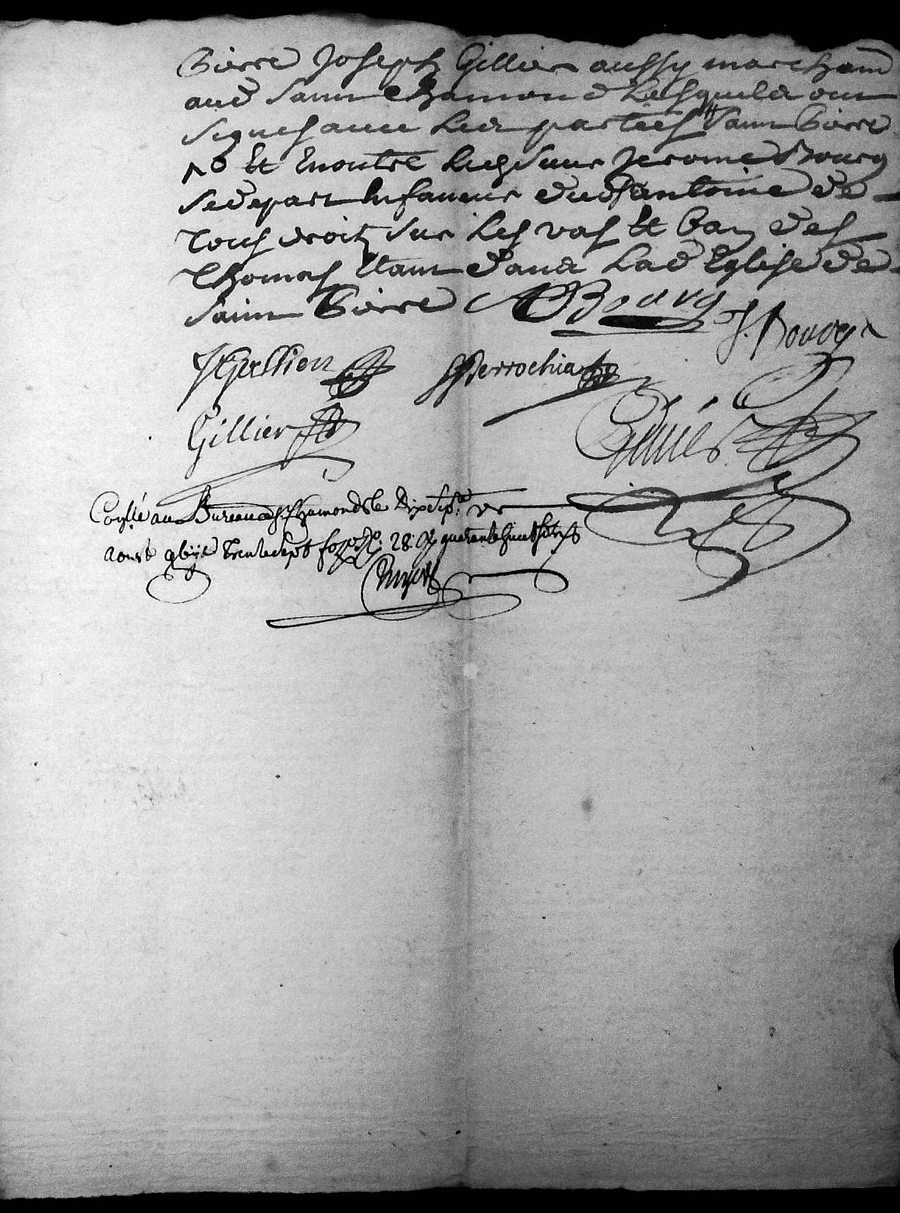 Pierre Joseph Gillier aussy marchand
aud Saint Chamond Lesquels ont
signes avec Les parties Saint Pierre
No Et Enoutre Led Sieur Jerome Bourg
Sedepart Enfaveur dud Santoine de
Tous droitz sur Les vas Et ban des
Thomas Etant dans Lad Eglise de
Saint Pierre ABourg
J. Bourg
JGallien JPerrochia
Gillier
Conllé au Bureau de St Chamond Le Dixsept de
aoust trente sept fo 28 quarante huit sols